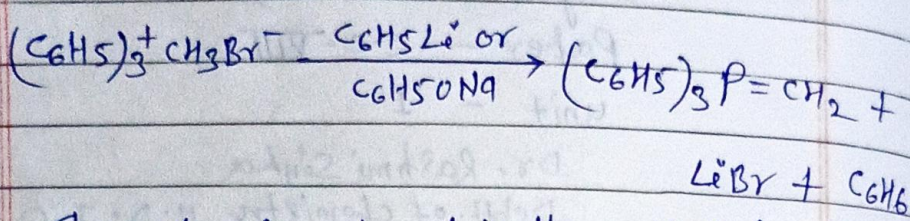 (C6H5)3+ CH3Br- C6H5Li or
C6H5ONa → (C6H5)3 P = CH2 +
LiBr + C6H6